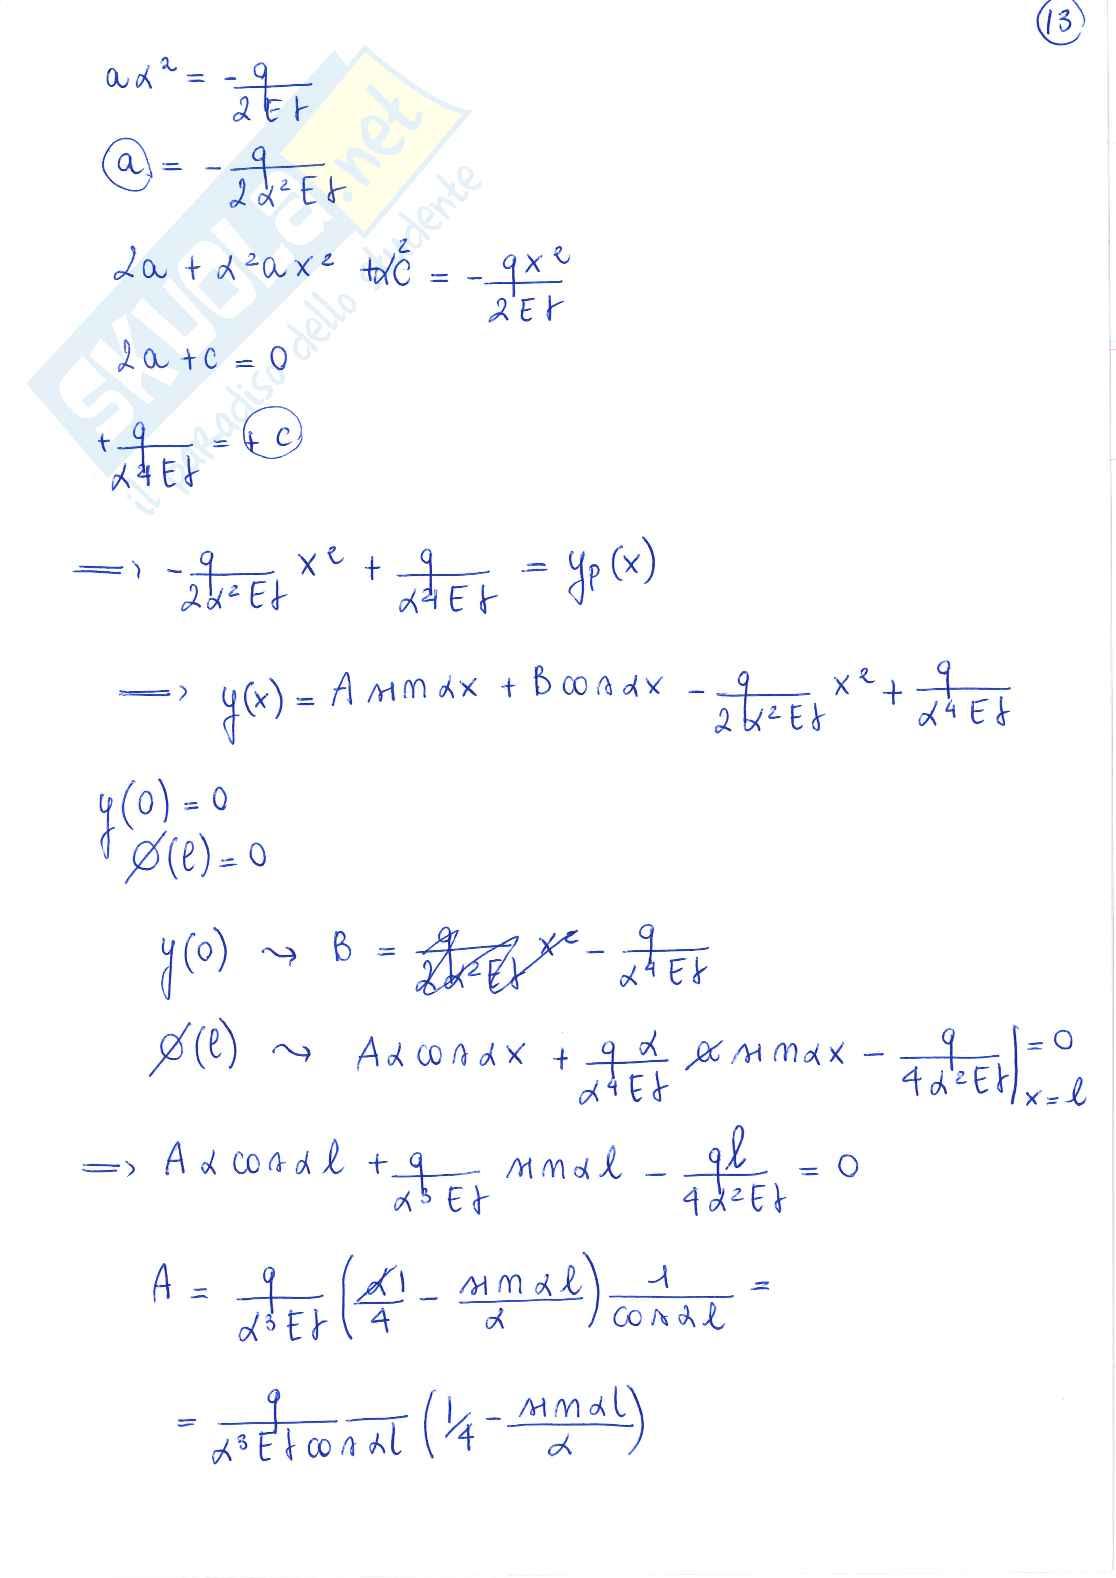 13
aα² = - q / 2EJ
a = - q / 2α²EJ
2a + α²ax² + α²c = - qx² / 2EJ
2a + c = 0
+ q / α⁴EJ = + c
⇒ - q / 2α²EJ x² + q / α⁴EJ = yp(x)
⇒ y(x) = A sin αx + B cos αx - q / 2α²EJ x² + q / α⁴EJ
y(0) = 0
∅(l) = 0
y(0) ⇝ B = q / 2α²EJ x² - q / α⁴EJ
∅(l) ⇝ Aα cos αx + qα / α⁴EJ α sin αx - q / 4α²EJ | x=l = 0
⇒ Aα cos αl + q / α³EJ sin αl - ql / 4α²EJ = 0
A = q / α³EJ ( α1 / 4 - sin αl / α ) 1 / cos αl =
= q / α³EJ cos αl ( 1/4 - sin αl / α )
SKUOLA.net
il paradiso dello studente